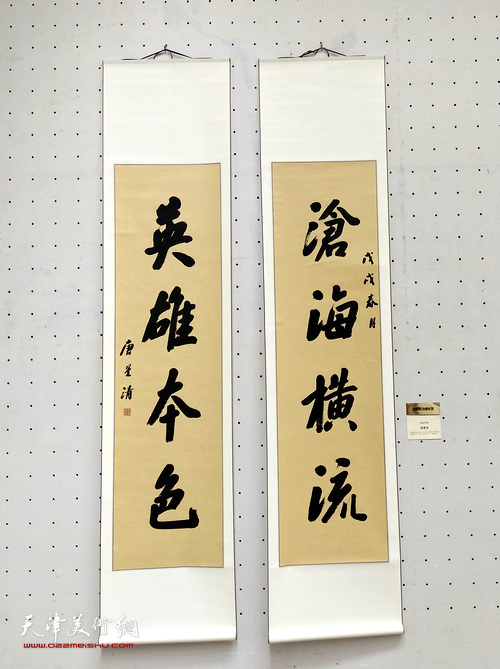 滄海橫流
戊戌春月
英雄本色
唐星清
天津美術網
www.022meishu.com